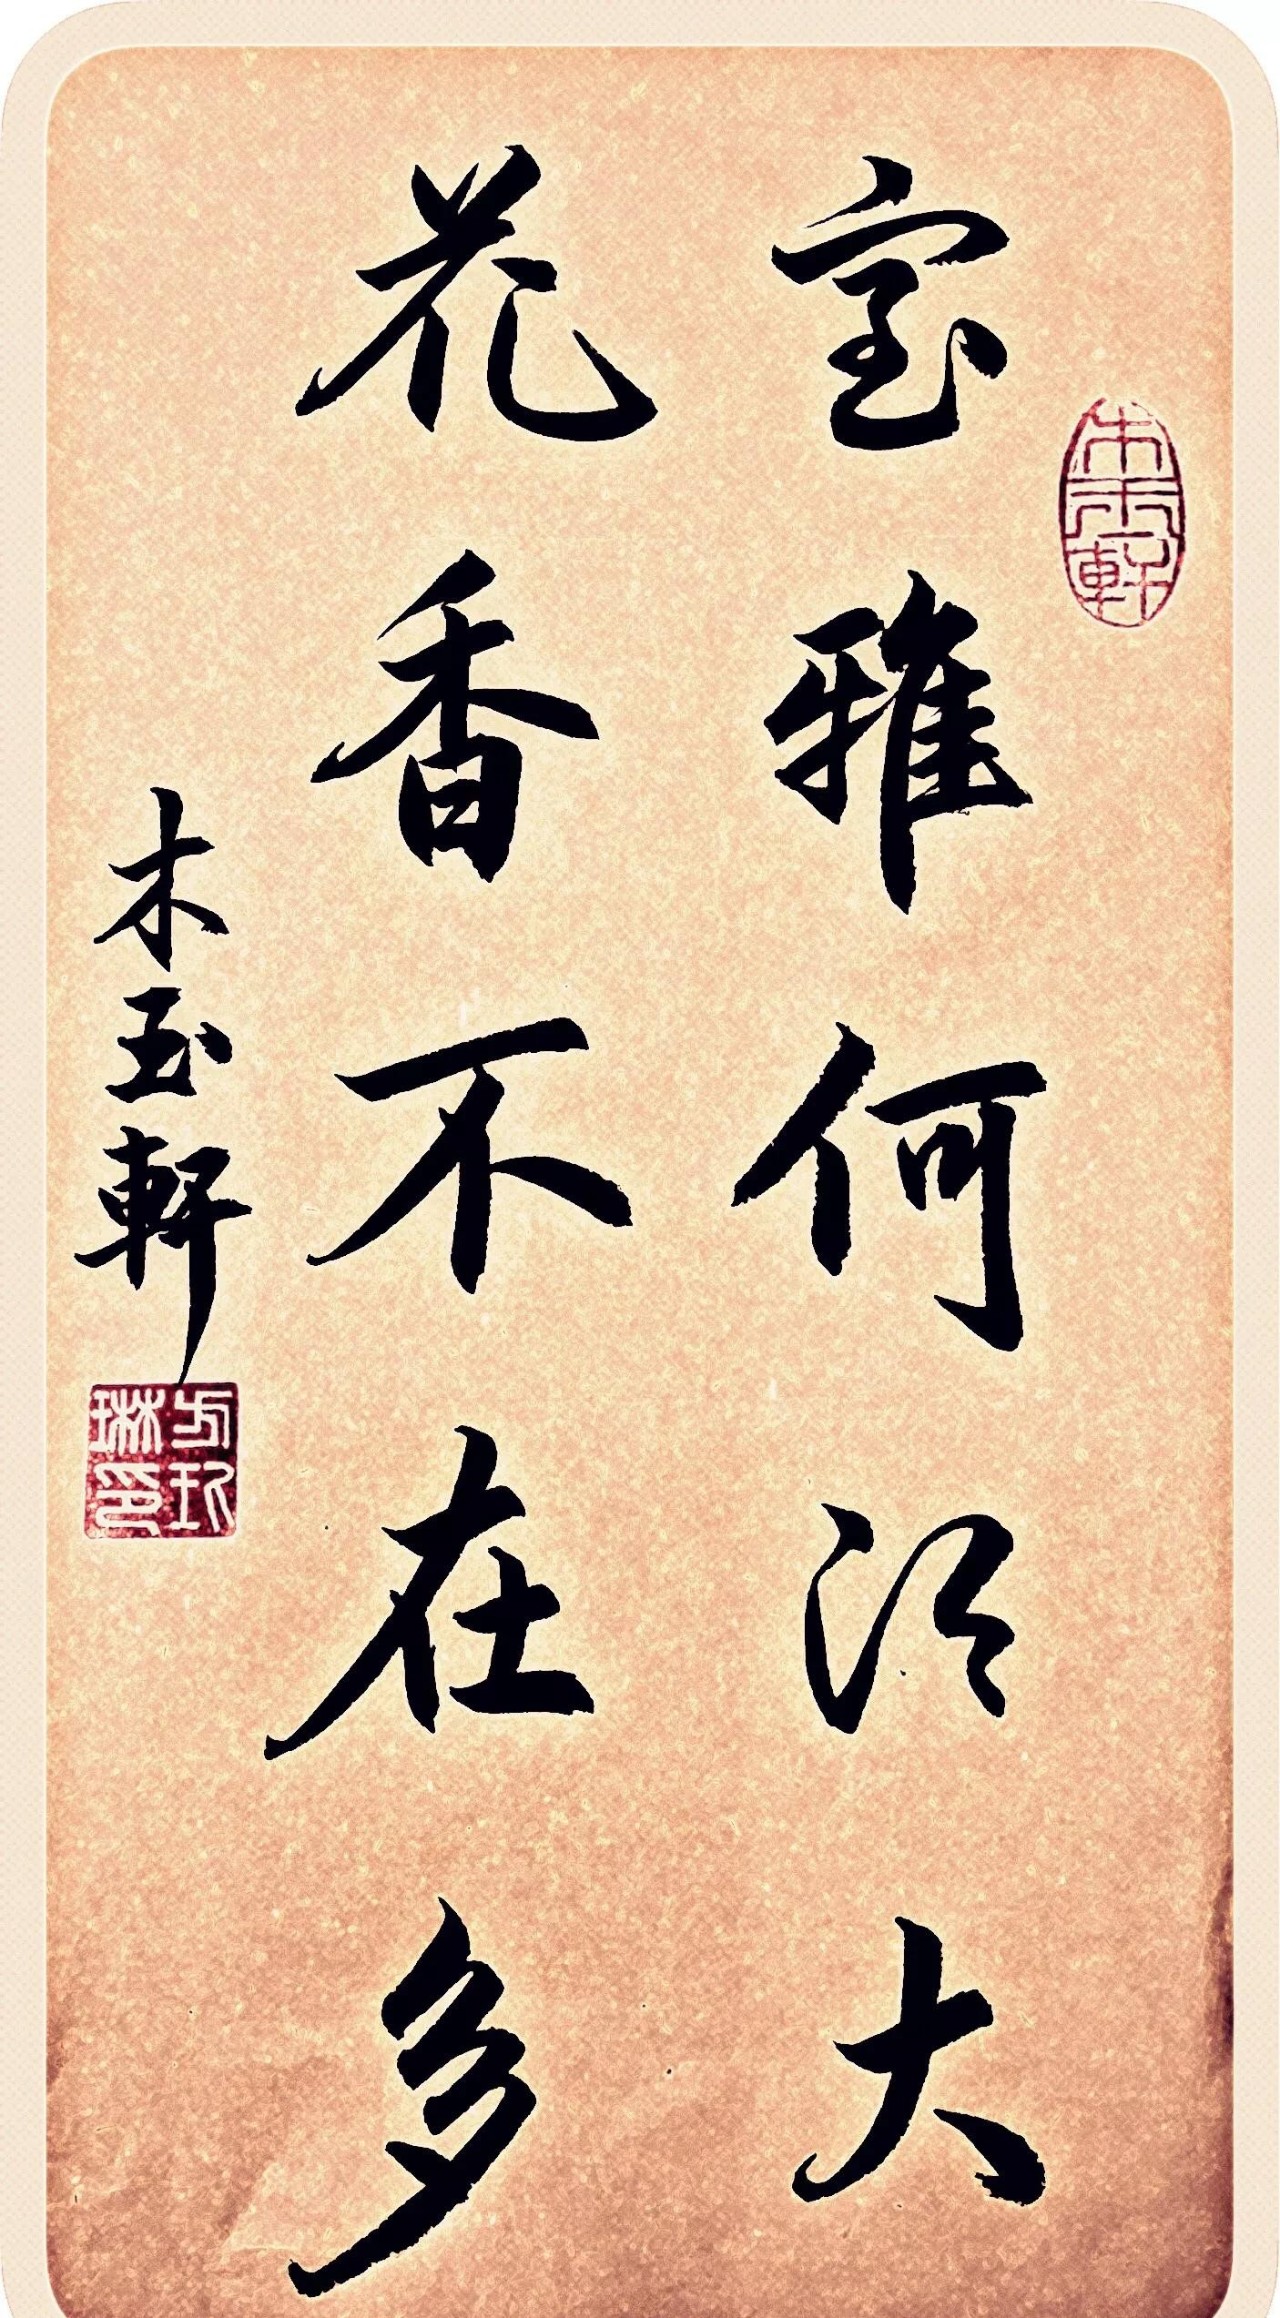 室雅何須大
花香不在多
木玉軒
木玉軒